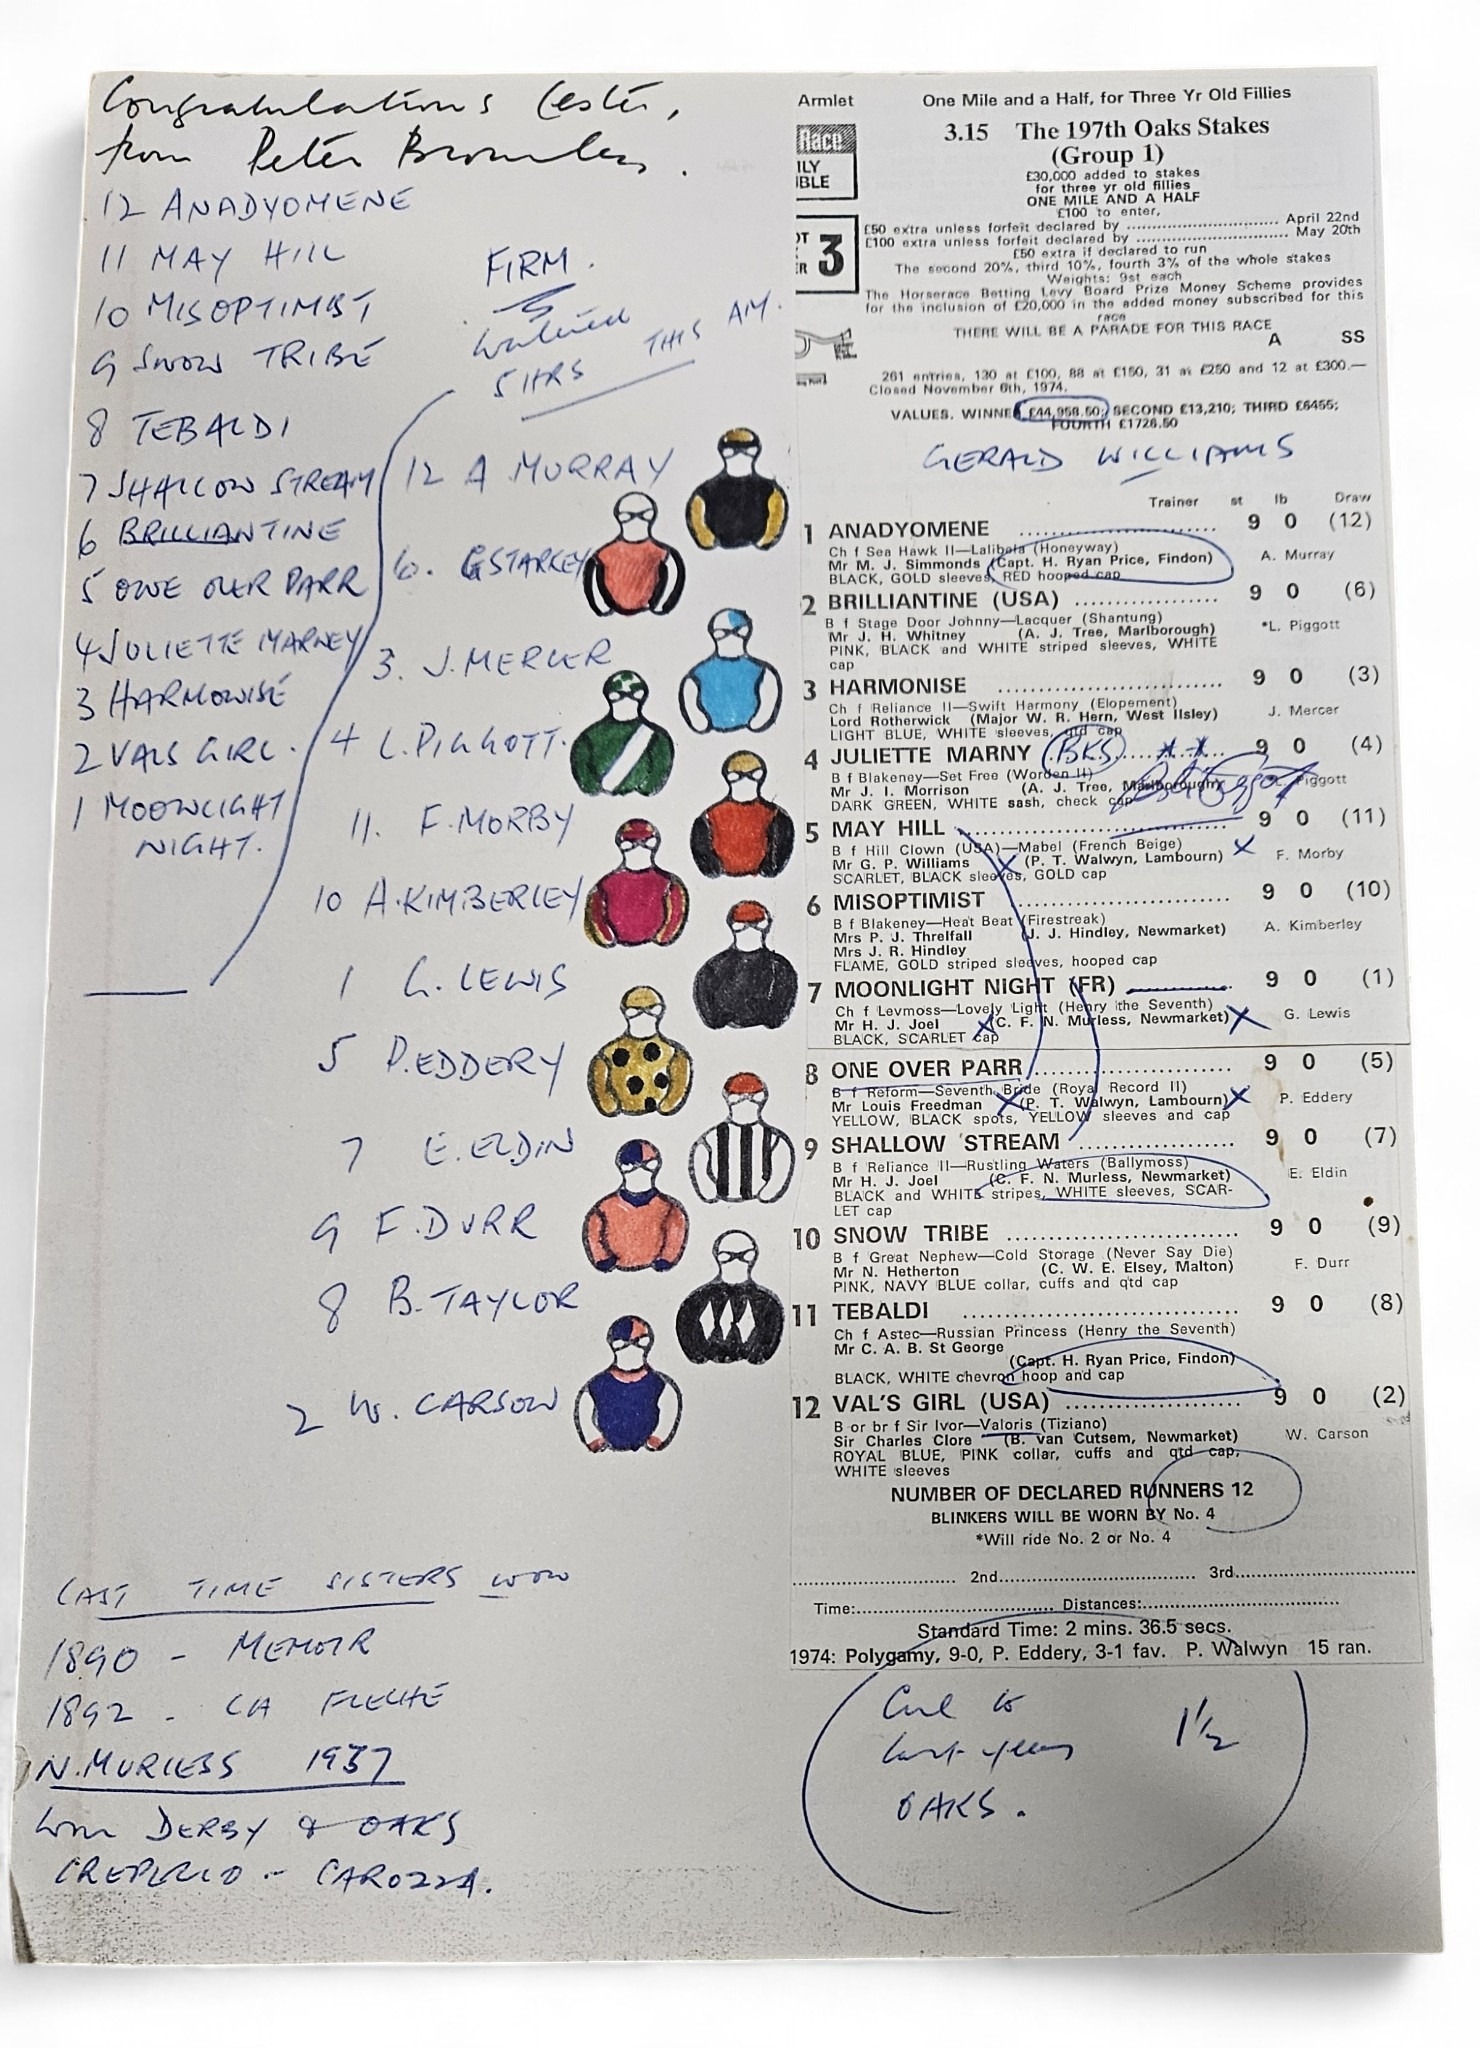 Congratulations Lester,
from Peter Bromley.
12 ANADYOMENE
11 MAY HILL
10 MISOPTIMIST
9 SNOW TRIBE
8 TEBALDI
7 SHALLOW STREAM
6 BRILLIANTINE
5 ONE OVER PARR
4 JULIETTE MARNEY
3 HARMONISE
2 VALS GIRL.
1 MOONLIGHT
NIGHT.
FIRM.
watered
5 HRS THIS AM.
12 A MURRAY
6. G STARKEY
3. J. MERCER
4 L. PIGGOTT.
11. F. MORBY
10 A. KIMBERLEY
1 G. LEWIS
5 P. EDDERY
7 E. ELDIN
9 F. DURR
8 B. TAYLOR
2 W. CARSON
LAST TIME SISTERS WON
1890 - MEMOIR
1892 - LA FLECHE
N. MURLESS 1957
won DERBY & OAKS
CREPELLO - CAROZZA.
Armlet
One Mile and a Half, for Three Yr Old Fillies
Race
ILY
IBLE
3.15 The 197th Oaks Stakes
(Group 1)
£30,000 added to stakes
for three yr old fillies
ONE MILE AND A HALF
£100 to enter,
OT
ER 3
£50 extra unless forfeit declared by .............................. April 22nd
£100 extra unless forfeit declared by .............................. May 20th
£50 extra if declared to run
The second 20%, third 10%, fourth 3% of the whole stakes
Weights: 9st each
The Horserace Betting Levy Board Prize Money Scheme provides
for the inclusion of £20,000 in the added money subscribed for this
race
THERE WILL BE A PARADE FOR THIS RACE
A SS
261 entries, 130 at £100, 88 at £150, 31 at £250 and 12 at £300.—
Closed November 6th, 1974.
VALUES. WINNER £44,958.50; SECOND £13,210; THIRD £6455;
FOURTH £1726.50
GERALD WILLIAMS
Trainer st lb Draw
1 ANADYOMENE .................... 9 0 (12)
Ch f Sea Hawk II—Lalibela (Honeyway)
Mr M. J. Simmonds (Capt. H. Ryan Price, Findon) A. Murray
BLACK, GOLD sleeves, RED hooped cap
2 BRILLIANTINE (USA) .................... 9 0 (6)
B f Stage Door Johnny—Lacquer (Shantung)
Mr J. H. Whitney (A. J. Tree, Marlborough) *L. Piggott
PINK, BLACK and WHITE striped sleeves, WHITE
cap
3 HARMONISE .................... 9 0 (3)
Ch f Reliance II—Swift Harmony (Elopement)
Lord Rotherwick (Major W. R. Hern, West Ilsley) J. Mercer
LIGHT BLUE, WHITE sleeves, qtd cap
4 JULIETTE MARNY BKS .......... 9 0 (4)
B f Blakeney—Set Free (Worden II)
Mr J. I. Morrison (A. J. Tree, Marlborough) L. Piggott
DARK GREEN, WHITE sash, check cap
5 MAY HILL .................... 9 0 (11)
B f Hill Clown (USA)—Mabel (French Beige)
Mr G. P. Williams X (P. T. Walwyn, Lambourn) X F. Morby
SCARLET, BLACK sleeves, GOLD cap
6 MISOPTIMIST .................... 9 0 (10)
B f Blakeney—Heat Beat (Firestreak)
Mrs P. J. Threlfall (J. J. Hindley, Newmarket) A. Kimberley
Mrs J. R. Hindley
FLAME, GOLD striped sleeves, hooped cap
7 MOONLIGHT NIGHT (FR) .................... 9 0 (1)
Ch f Levmoss—Lovely Light (Henry the Seventh)
Mr H. J. Joel X (C. F. N. Murless, Newmarket) X G. Lewis
BLACK, SCARLET cap
8 ONE OVER PARR .................... 9 0 (5)
B f Reform—Seventh Bride (Royal Record II)
Mr Louis Freedman X (P. T. Walwyn, Lambourn) X P. Eddery
YELLOW, BLACK spots, YELLOW sleeves and cap
9 SHALLOW STREAM .................... 9 0 (7)
B f Reliance II—Rustling Waters (Ballymoss)
Mr H. J. Joel (C. F. N. Murless, Newmarket) E. Eldin
BLACK and WHITE stripes, WHITE sleeves, SCAR-
LET cap
10 SNOW TRIBE .................... 9 0 (9)
B f Great Nephew—Cold Storage (Never Say Die)
Mr N. Hetherton (C. W. E. Elsey, Malton) F. Durr
PINK, NAVY BLUE collar, cuffs and qtd cap
11 TEBALDI .................... 9 0 (8)
Ch f Astec—Russian Princess (Henry the Seventh)
Mr C. A. B. St George
(Capt. H. Ryan Price, Findon)
BLACK, WHITE chevron hoop and cap
12 VAL'S GIRL (USA) .................... 9 0 (2)
B or br f Sir Ivor—Valoris (Tiziano)
Sir Charles Clore (B. van Cutsem, Newmarket) W. Carson
ROYAL BLUE, PINK collar, cuffs and qtd cap,
WHITE sleeves
NUMBER OF DECLARED RUNNERS 12
BLINKERS WILL BE WORN BY No. 4
*Will ride No. 2 or No. 4
.................... 2nd.................... 3rd....................
Time:.................... Distances:....................
Standard Time: 2 mins. 36.5 secs.
1974: Polygamy, 9-0, P. Eddery, 3-1 fav. P. Walwyn 15 ran.
last years 1½
OAKS.